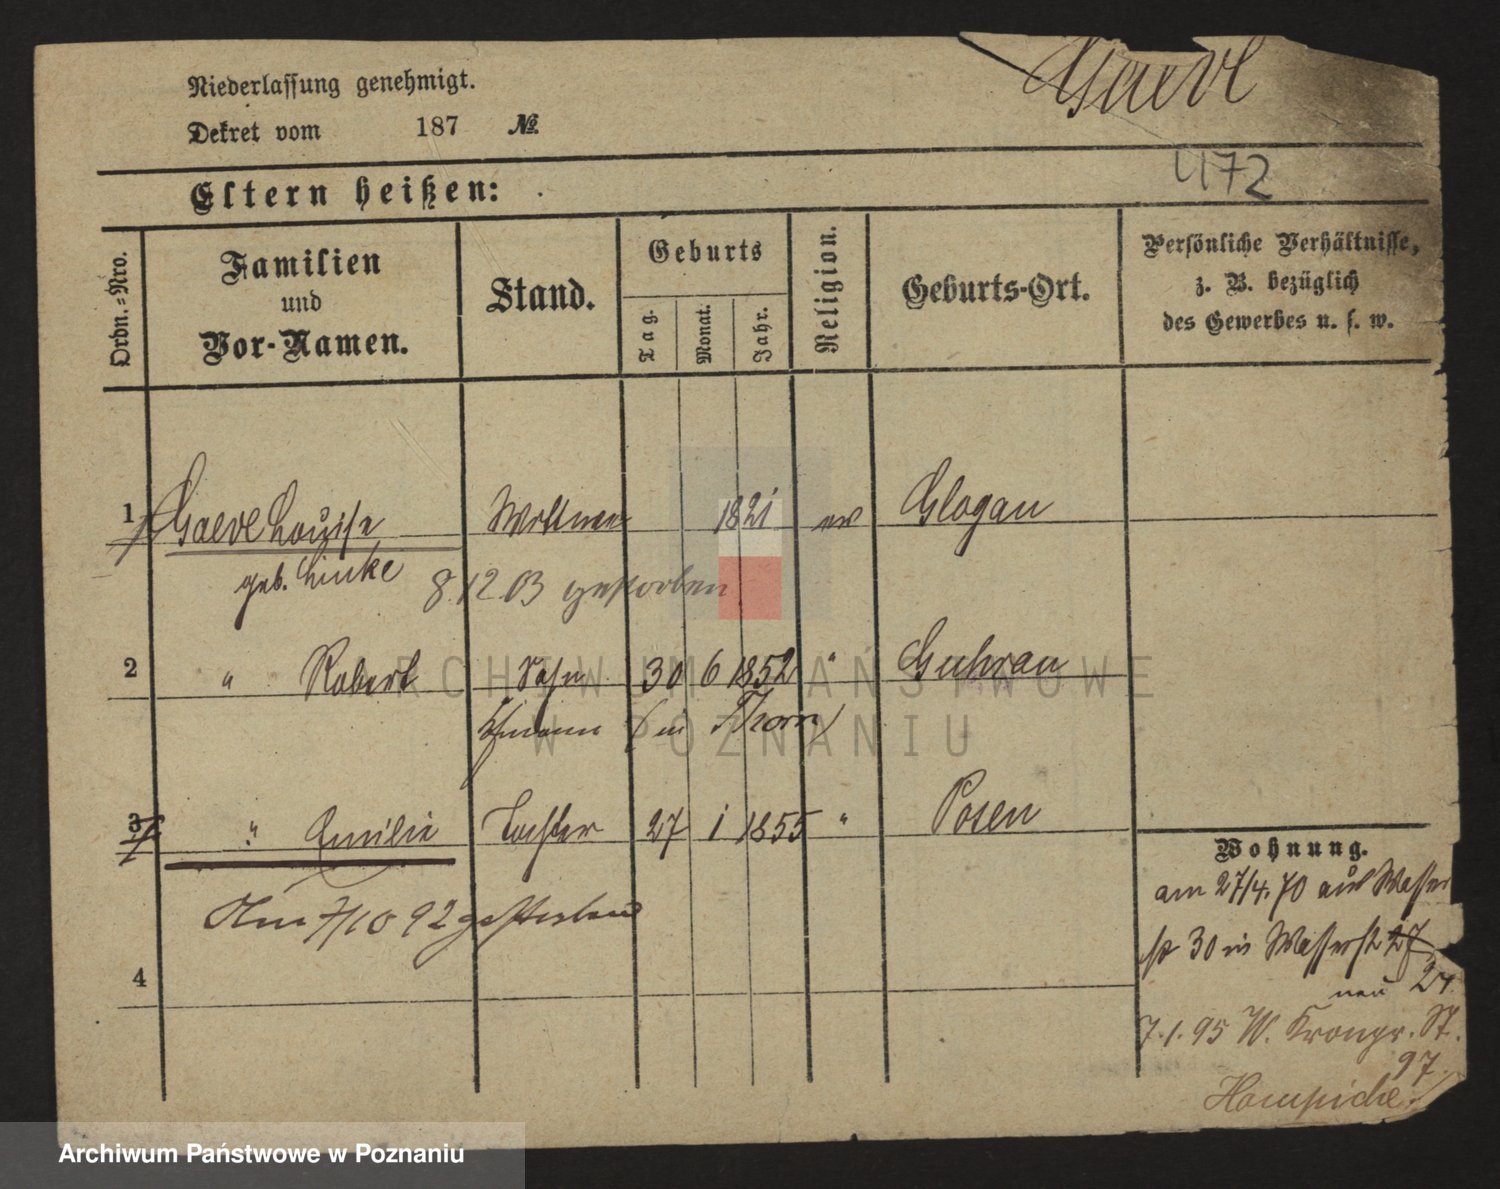 Niederlassung genehmigt.
Dekret vom 187 №
Gaevl
472
Eltern heißen:
Ordn.-Nro.
Familien
und
Vor-Namen.
Stand.
Geburts
Tag.
Monat.
Jahr.
Religion.
Geburts-Ort.
Persönliche Verhältnisse,
z. B. bezüglich
des Gewerbes u. s. w.
1 Gaevel Louise Wittwe 1821 ev Glogau
geb. Linke 8.12.03 gestorben
2 " Robert Sohn 30 6 1852 " Guhrau
(in Thorn)
3 " Emilie Tochter 27 1 1855 " Posen
Am 7/10 92 gestorben
4
Wohnung.
am 27/4.70 aus Wasser
str 30 in Wasserstr 27
neu 27.
7.1.95 W. Kronpr. St.
97.
ARCHIWUM PAŃSTWOWE
W POZNANIU
Archiwum Państwowe w Poznaniu